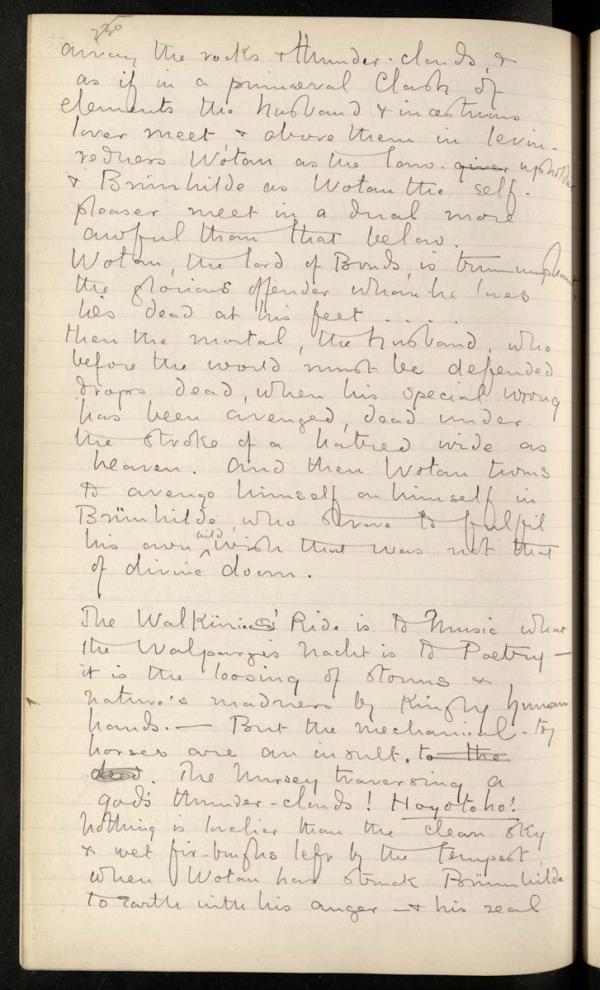 among the rocks & thunder-clouds, &
as if in a primæval Clash of
elements the husband & incestuous
lover meet & above them in levin-
redness Wotan as the law-giver upholder
& Brünhilde as Wotan the self-
pleaser meet in a dual more
awful than that below.
Wotan, the lord of Bonds, is triumphant,
the glorious offender whom he loves
lies dead at his feet . . . .
then the mortal, the husband, who
before the world must be defended
drops dead, when his special wrong
has been avenged, dead under
the stroke of a hatred wide as
heaven. And then Wotan turns
to avenge himself on himself in
Brünhilde, who strove to fulfil
his own wild wish that was not that
of divine doom.
The Walküries' Ride is to Music what
the Walpurgis Nacht is to Poetry —
it is the loosing of storms &
nature's madness by Kingly human
hands. — But the mechanical-toy
horses are an insult. to the
dead. The Nursery traversing a
god's thunder-clouds! Hoyotoho!
Nothing is lovelier than the clean sky
& wet fir-boughs left by the tempest,
when Wotan has struck Brünnhilde
to earth with his anger — & his real